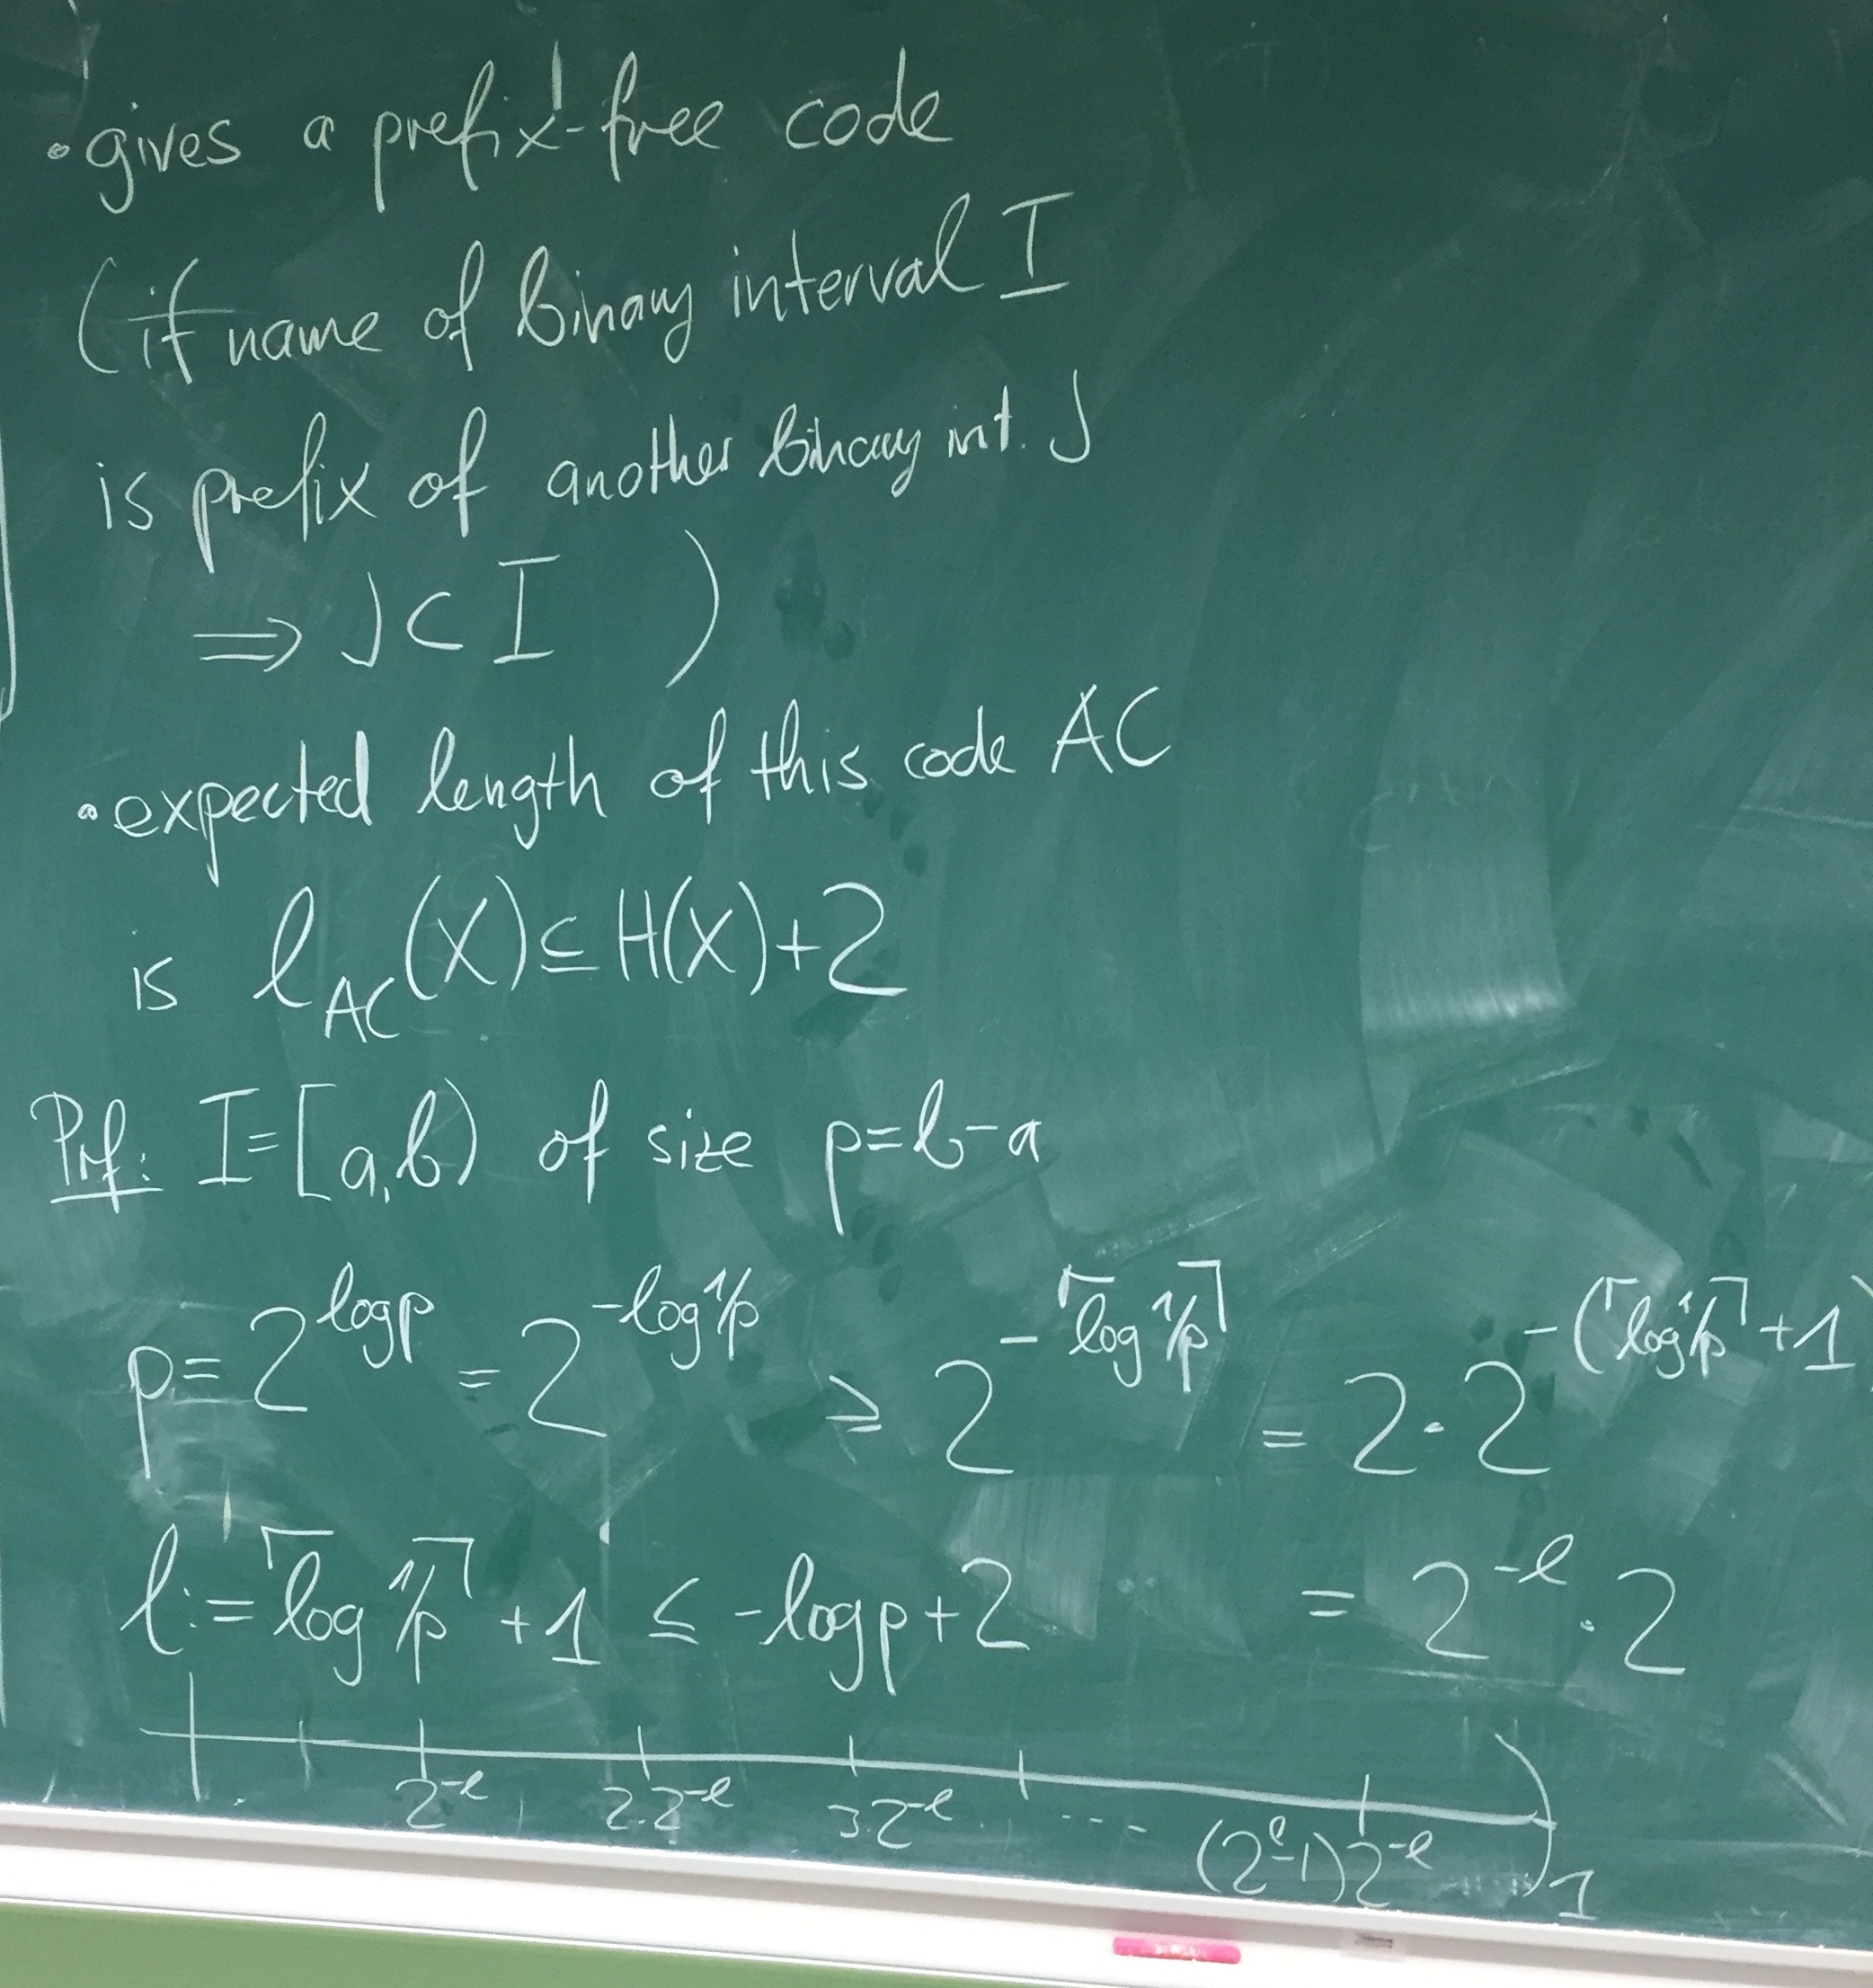 • gives a prefix-free code
(if name of binary interval I
is prefix of another binary int. J
⇒ J ⊂ I )
• expected length of this code AC
is ℓ_AC(X) ≤ H(X)+2
Prf: I=[a,b) of size p=b-a
p = 2^{log p} = 2^{-log 1/p} ≥ 2^{-⌈log 1/p⌉} = 2·2^{-(⌈log 1/p⌉+1)}
ℓ := ⌈log 1/p⌉ + 1 ≤ -log p + 2 = 2^{-ℓ}·2
2^{-ℓ} 2·2^{-ℓ} 3·2^{-ℓ} ... (2^ℓ-1)2^{-ℓ} 1